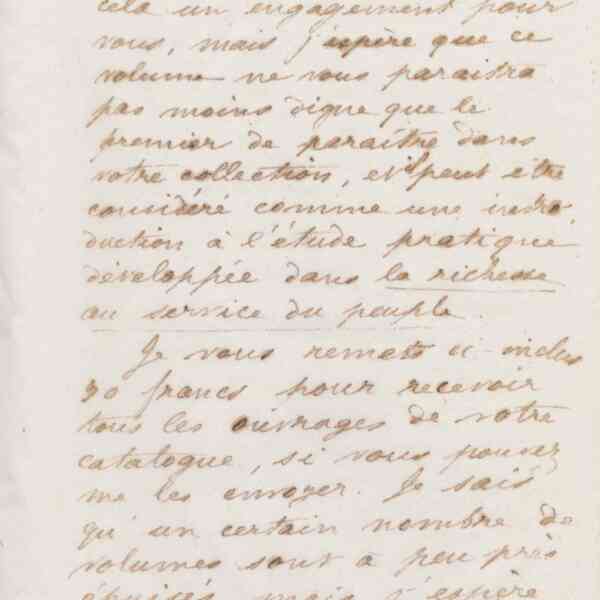 cela un engagement pour
vous, mais j'espère que ce
volume ne vous paraîtra
pas moins digne que le
premier de paraître dans
votre collection, et il peut être
considéré comme une intro
duction à l'étude pratique
développée dans la richesse
au service du peuple.
Je vous remets ci-inclus
30 francs pour recevoir
tous les ouvrages de votre
catalogue, si vous pouvez
me les envoyer. Je sais
qu'un certain nombre de
volumes sont à peu près
épuisés, mais j'espère